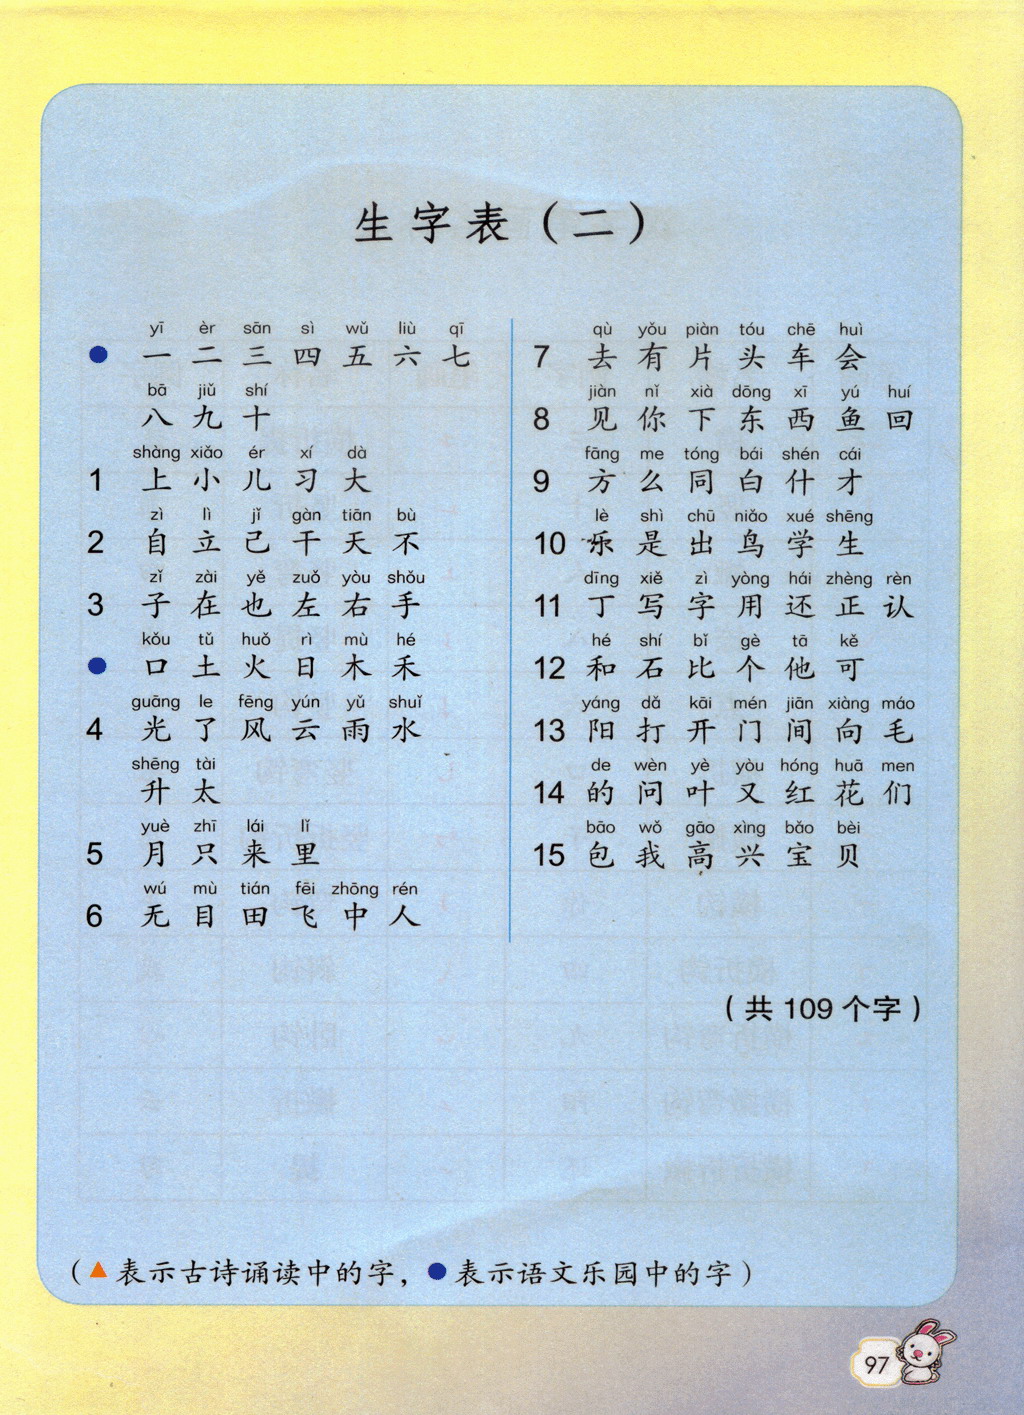 生字表（二）
yī èr sān sì wǔ liù qī
● 一 二 三 四 五 六 七
bā jiǔ shí
八 九 十
shàng xiǎo ér xí dà
1 上 小 儿 习 大
zì lì jǐ gàn tiān bù
2 自 立 己 干 天 不
zǐ zài yě zuǒ yòu shǒu
3 子 在 也 左 右 手
kǒu tǔ huǒ rì mù hé
● 口 土 火 日 木 禾
guāng le fēng yún yǔ shuǐ
4 光 了 风 云 雨 水
shēng tài
升 太
yuè zhī lái lǐ
5 月 只 来 里
wú mù tián fēi zhōng rén
6 无 目 田 飞 中 人
qù yǒu piàn tóu chē huì
7 去 有 片 头 车 会
jiàn nǐ xià dōng xī yú huí
8 见 你 下 东 西 鱼 回
fāng me tóng bái shén cái
9 方 么 同 白 什 才
lè shì chū niǎo xué shēng
10 乐 是 出 鸟 学 生
dīng xiě zì yòng hái zhèng rèn
11 丁 写 字 用 还 正 认
hé shí bǐ gè tā kě
12 和 石 比 个 他 可
yáng dǎ kāi mén jiān xiàng máo
13 阳 打 开 门 间 向 毛
de wèn yè yòu hóng huā men
14 的 问 叶 又 红 花 们
bāo wǒ gāo xìng bǎo bèi
15 包 我 高 兴 宝 贝
（共 109 个字）
（▲表示古诗诵读中的字，●表示语文乐园中的字）
97